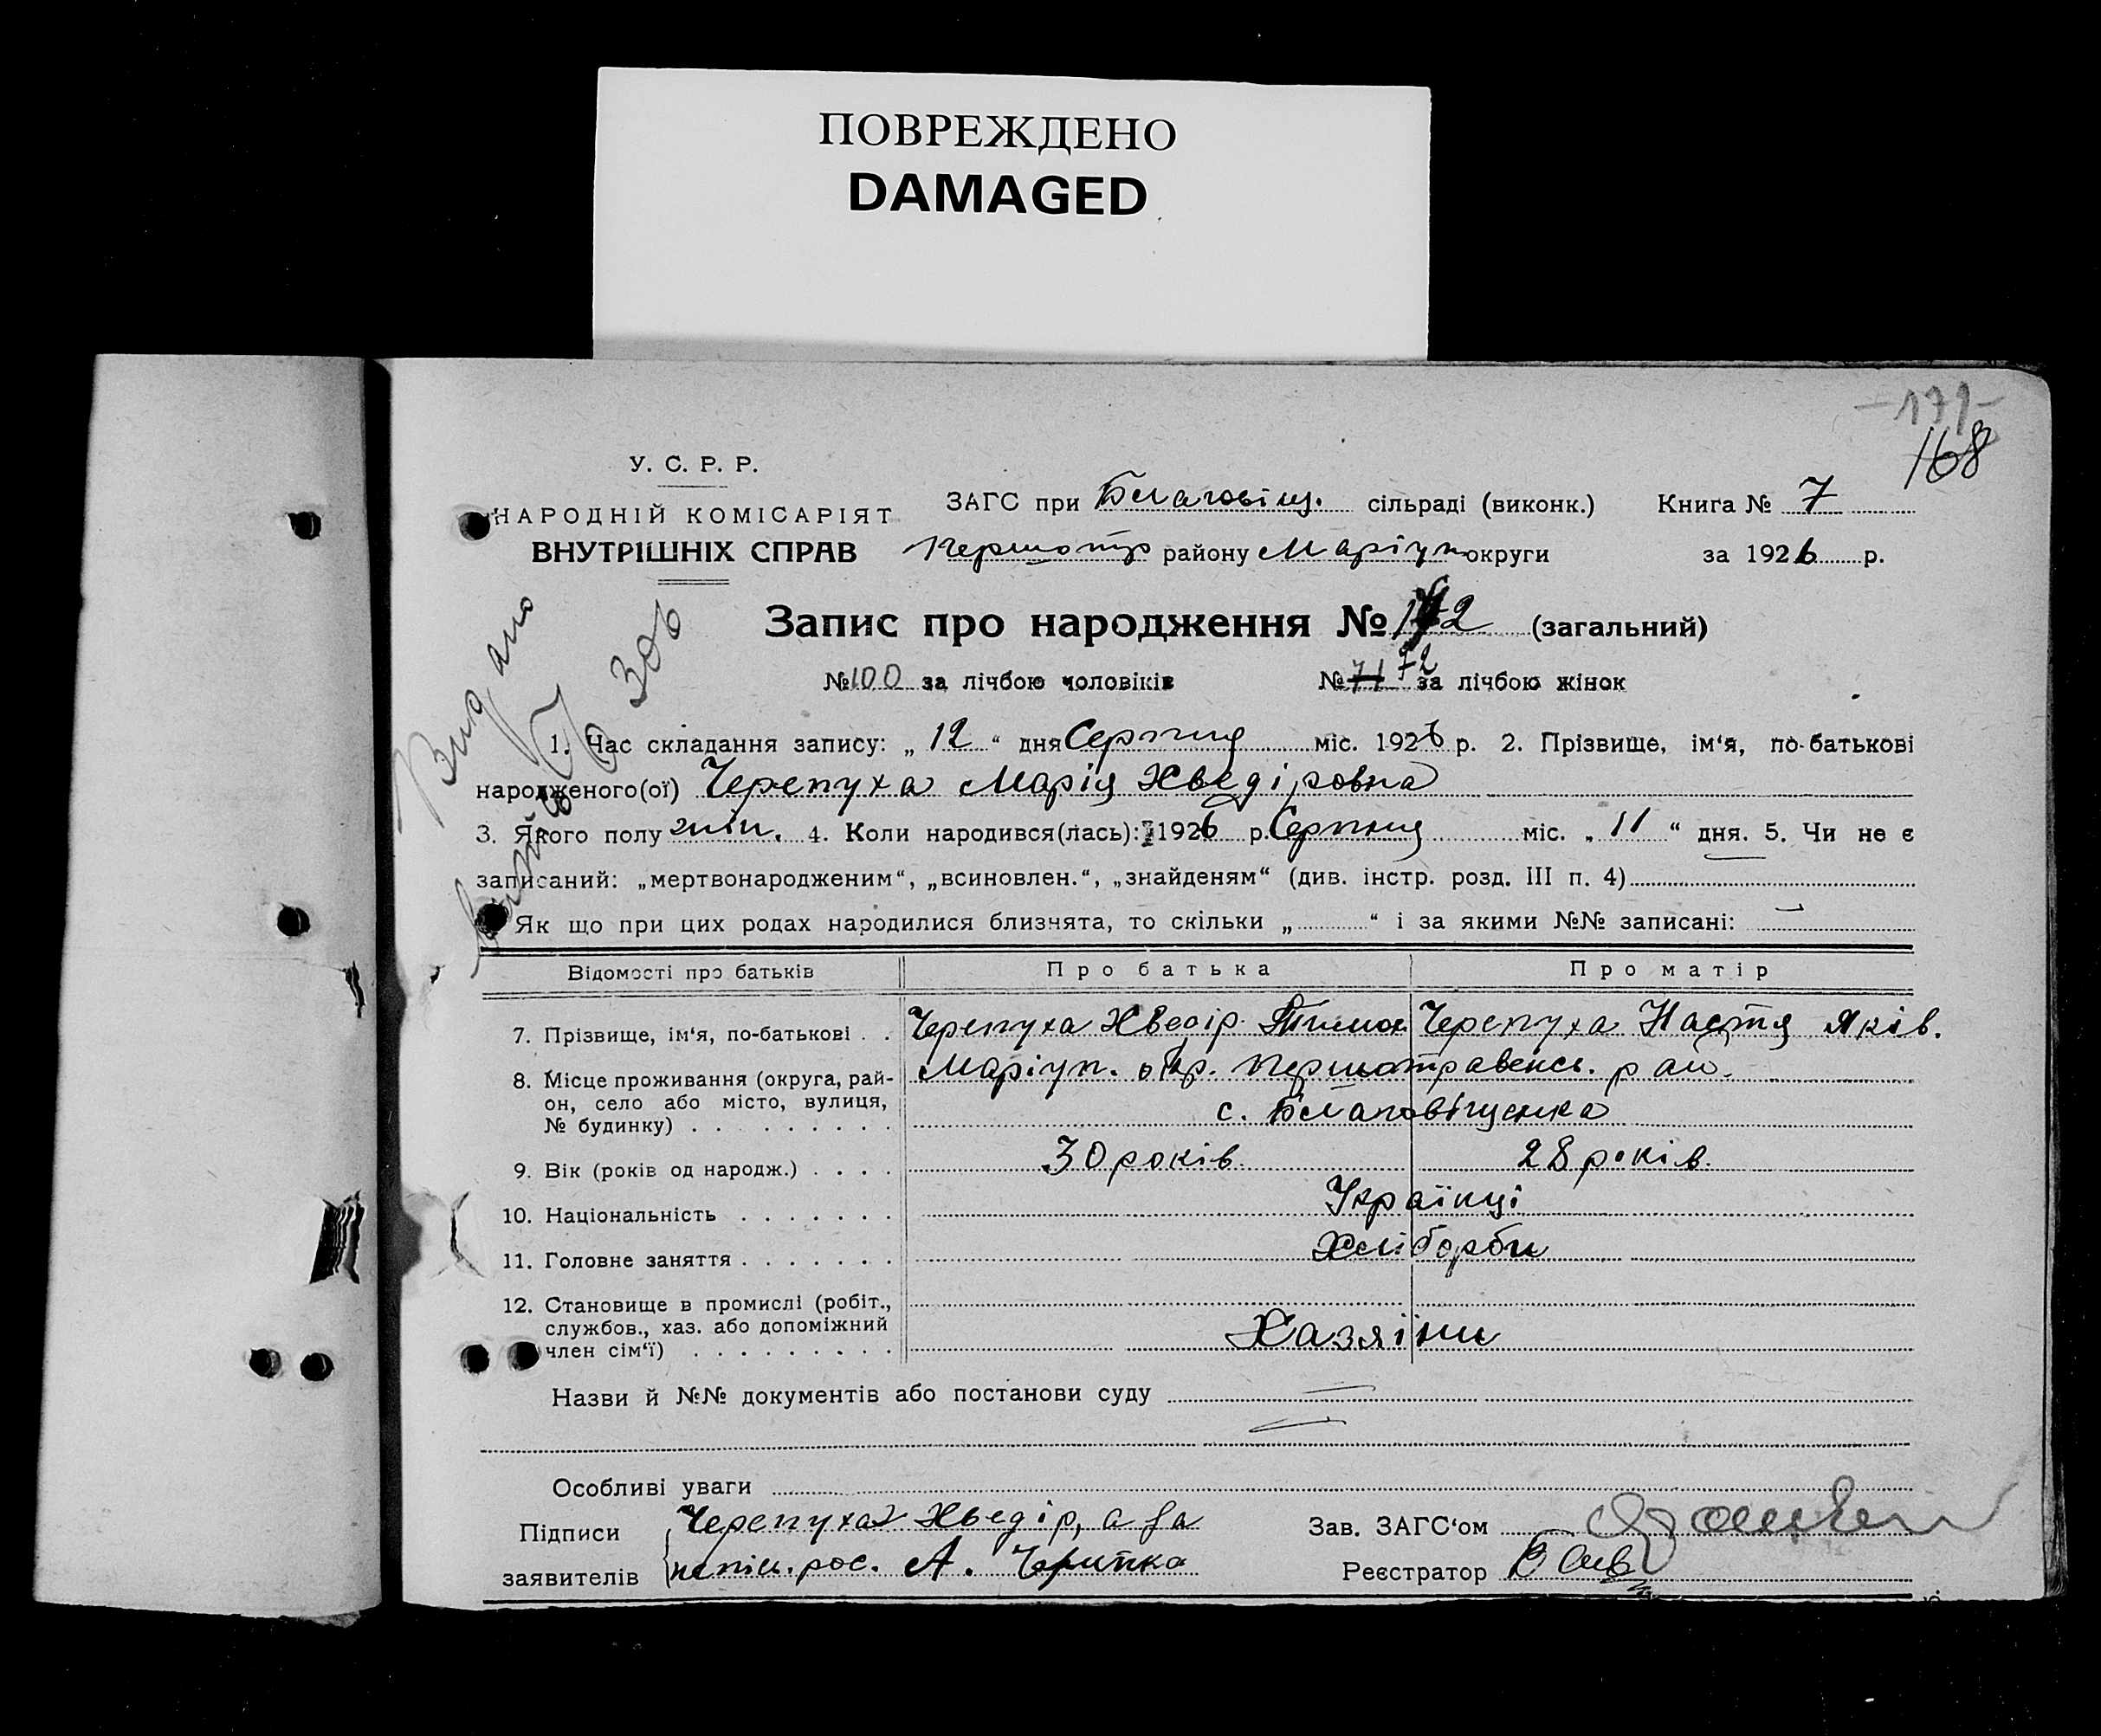 ПОВРЕЖДЕНО
DAMAGED
-171-
168
У. С. Р. Р.
НАРОДНІЙ КОМІСАРІЯТ
ВНУТРІШНІХ СПРАВ
ЗАГС при Благовіщ. сільраді (виконк.) Книга № 7
Першотр району Маріуп округи за 1926 р.
Запис про народження № 172 (загальний)
№ 100 за лічбою чоловіків № 71 72 за лічбою жінок
Видано
1. Час складання запису: „ 12 “ дня Серпня міс. 1926 р. 2. Прізвище, ім‘я, по-батькові
народженого(ої) Черепуха Марія Хведіровна
3. Якого полу жін. 4. Коли народився(лась): 1926 р. Серпня міс. „ 11 “ дня. 5. Чи не є
записаний: „мертвонародженим“, „всиновлен.“, „знайденям“ (див. інстр. розд. III п. 4)
Як що при цих родах народилися близнята, то скільки „ “ і за якими №№ записані: —
Відомості про батьків Про батька Про матір
7. Прізвище, ім‘я, по-батькові . . Черепуха Хведір Тимох Черепуха Настя Яків.
8. Місце проживання (округа, рай- Маріуп. окр. Першотравенсь. рай.
он, село або місто, вулиця, с. Благовіщенка
№ будинку) . . . . . . . . .
9. Вік (років од народж.) . . . . 30 років 28 років.
10. Національність . . . . . . . Українці
11. Головне заняття . . . . . . . Хлібороби
12. Становище в промислі (робіт.,
службов., хаз. або допоміжний Хазяіни
член сім‘ї) . . . . . . . . .
Назви й №№ документів або постанови суду —
Особливі уваги
Підписи Черепуха Хведір, а за
заявителів непис. рос. А.
Зав. ЗАГС‘ом
Реєстратор